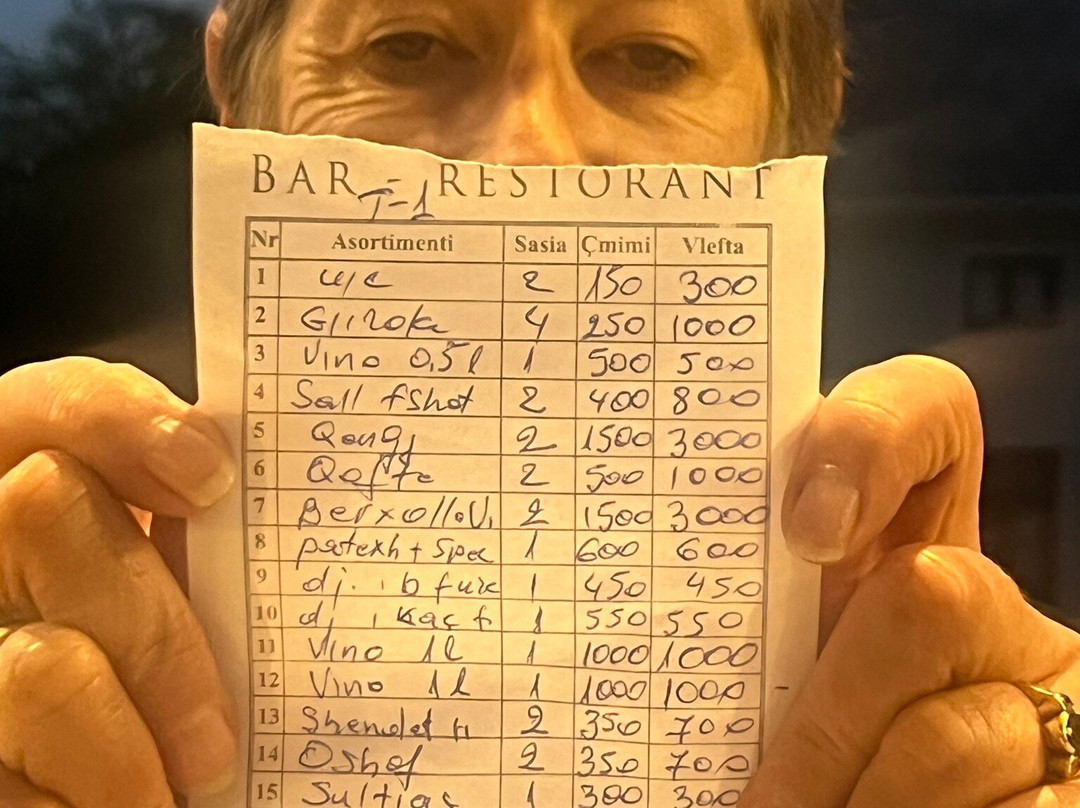 BAR - RESTORANT
T-1
Nr Asortimenti Sasia Çmimi Vlefta
1 u/c 2 150 300
2 Gliroka 4 250 1000
3 Vino 0,5 l 1 500 500
4 Sall fshat 2 400 800
5 Qengj 2 1500 3000
6 Qofte 2 500 1000
7 2 1500 3000
8 patexh + spec 1 600 600
9 dj. i b furr 1 450 450
10 1 550 550
11 Vino 1l 1 1000 1000
12 Vino 1l 1 1000 1000
13 Shendet 2 350 700
14 Oshaf 2 350 700
15 Sultjaç 1 300 300